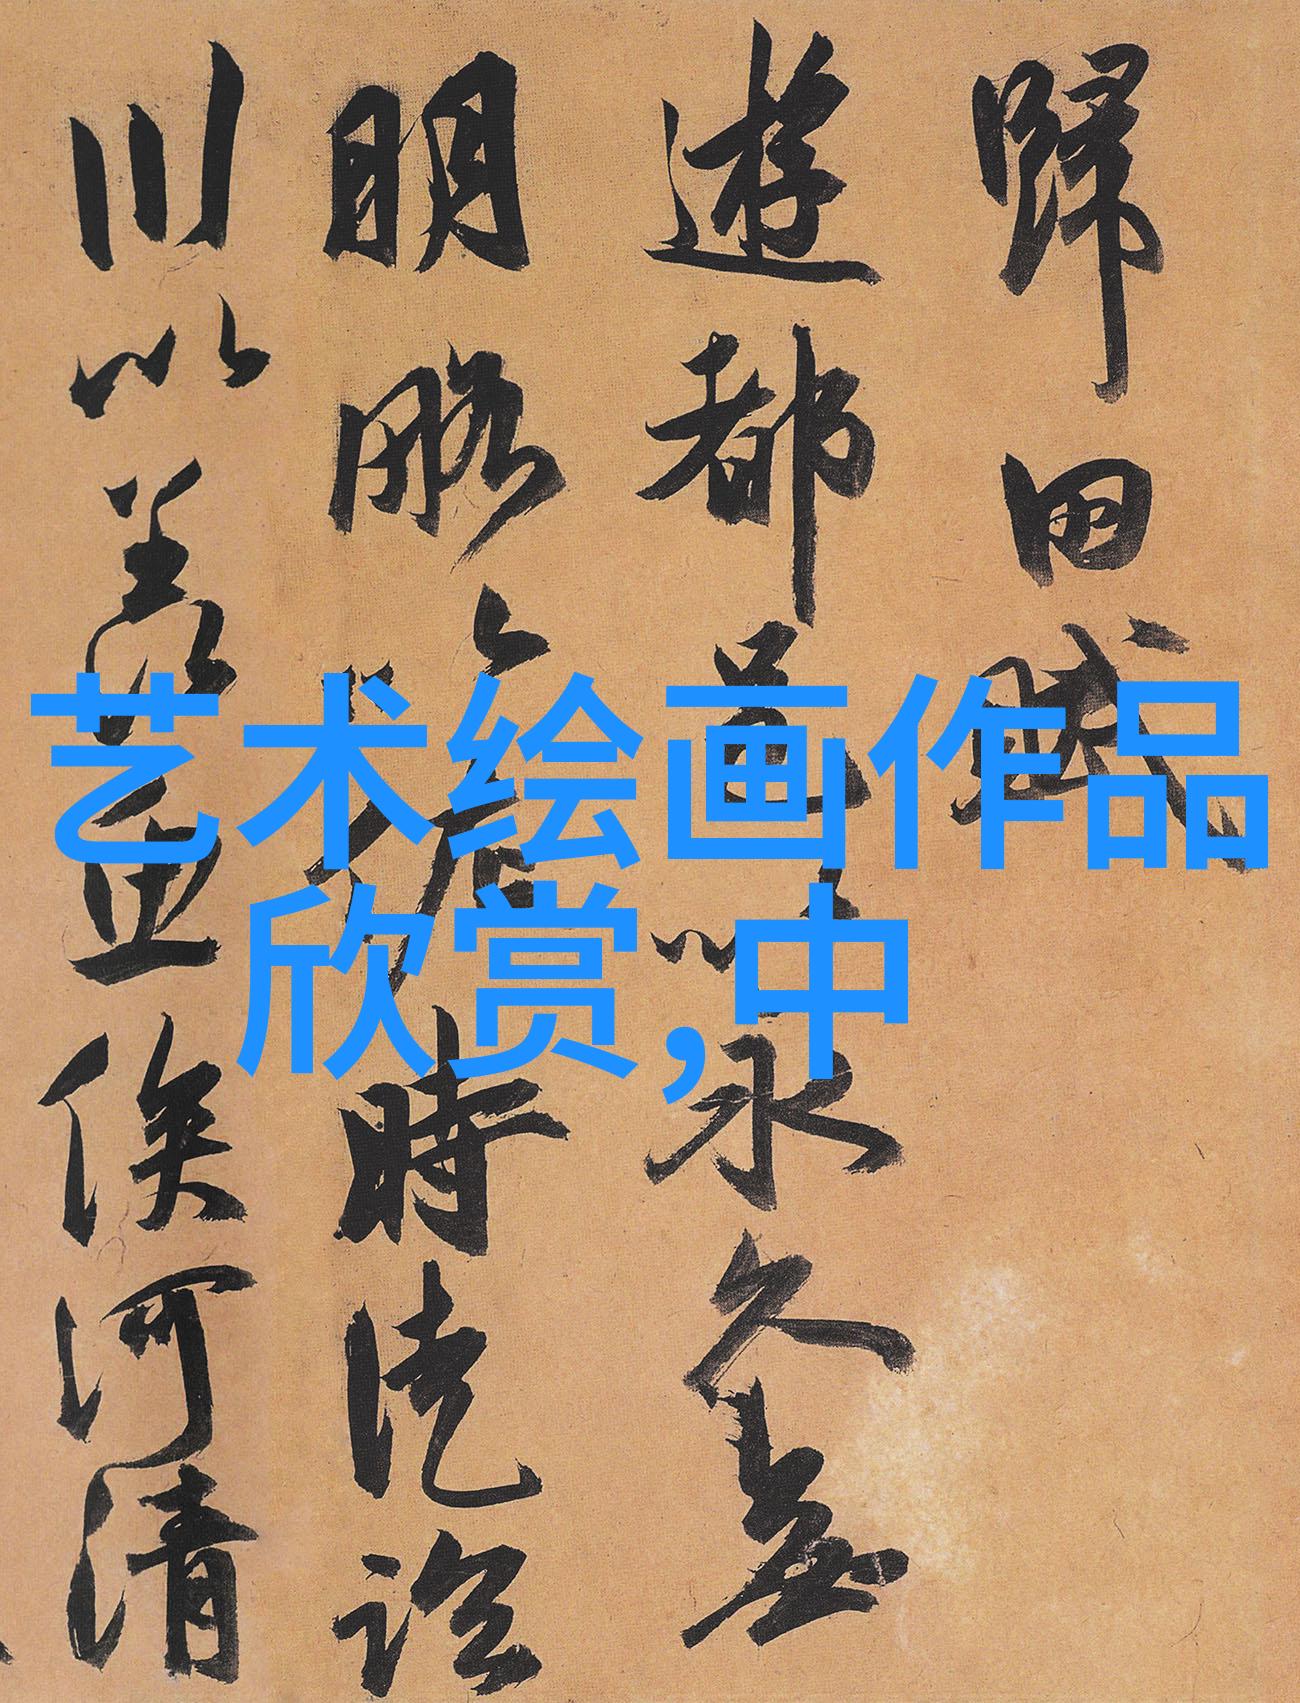 歸田賦
遊都邑以永久無
明略以佐時徒臨
川以羨魚俟河清
艺术绘画作品
欣赏,中